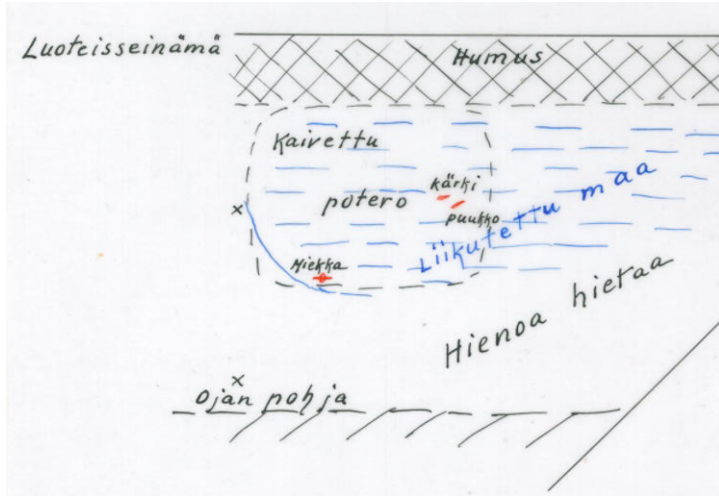 Luoteisseinämä
Humus
Kaivettu
potero
kärki
puukko
Miekka
Liikutettu maa
Hienoa hietaa
x
x
Ojan pohja